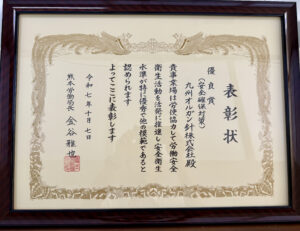 表彰状
優良賞
(安全確保対策)
九州オルガン針株式会社殿
貴事業場は労使協力して労働安全
衛生活動を活発に推進し安全衛生
水準が特に優秀で他の模範であると
認められます
よってここに表彰します
令和七年十月七日
熊本労働局長 金谷雅也